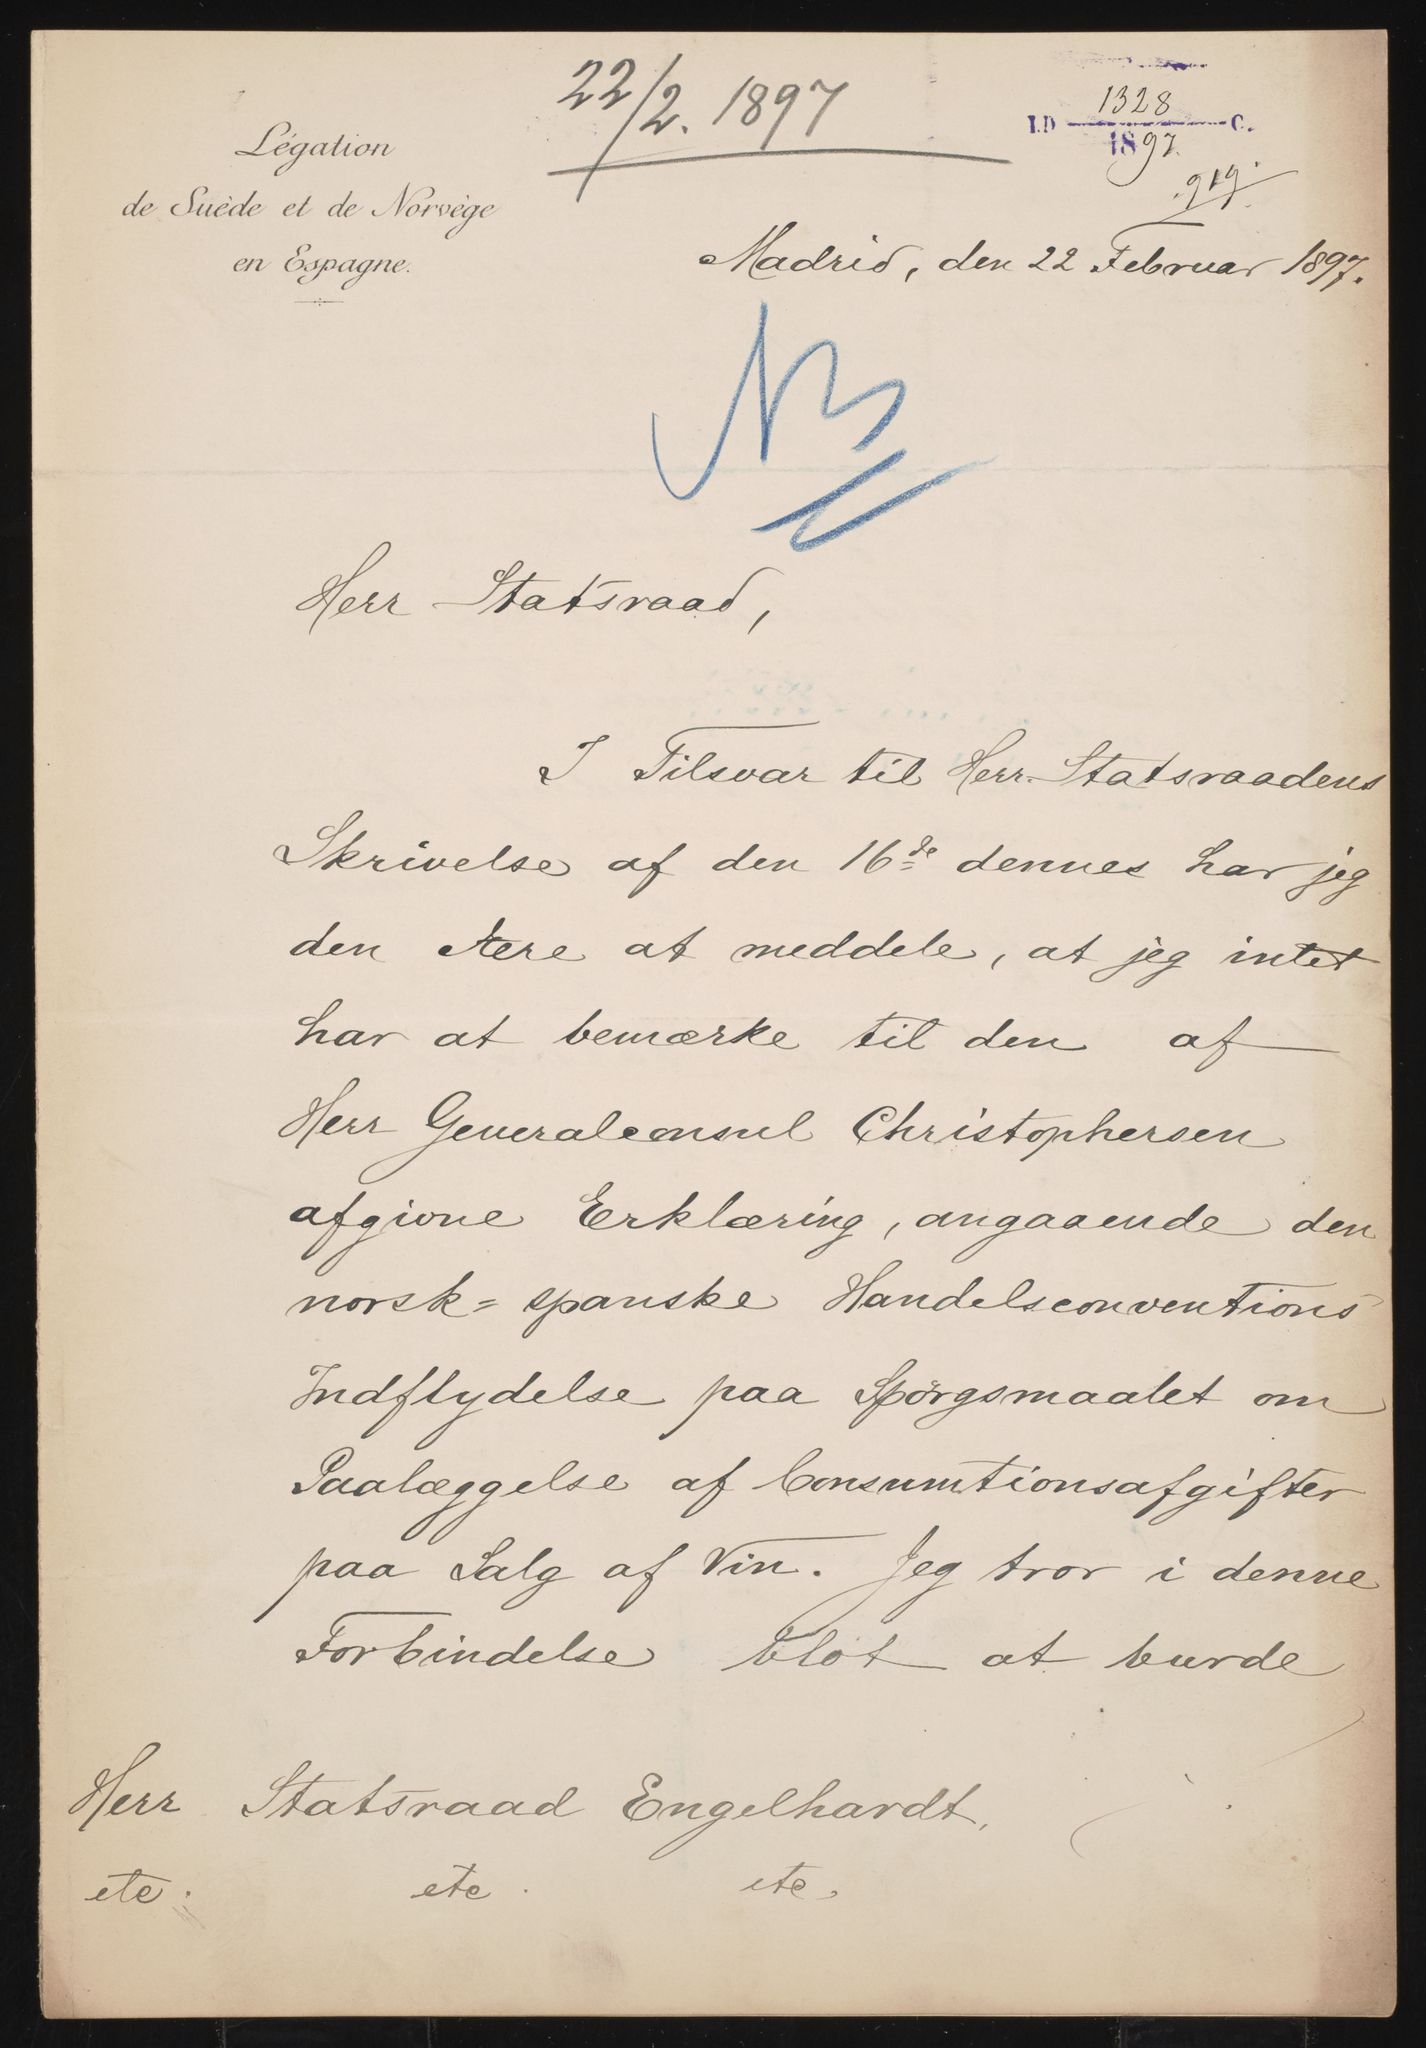 22/2. 1897
1328
I.D C.
1897.
Légation
de Suède et de Norvège
en Espagne.
Madrid, den 22 Februar 1897.
NB
Herr Statsraad,
I Tilsvar til Herr Statsraadens
Skrivelse af den 16de dennes har jeg
den Ære at meddele, at jeg intet
har at bemærke til den af
Herr Generalconsul Christophersen
afgivne Erklæring, angaaende den
norsk-spanske Handelsconventions
Indflydelse paa Spörgsmaalet om
Paalæggelse af Consumtionsafgifter
paa Salg af Vin. Jeg tror i denne
Forbindelse blot at burde
Herr Statsraad Engelhardt,
etc. etc. etc.